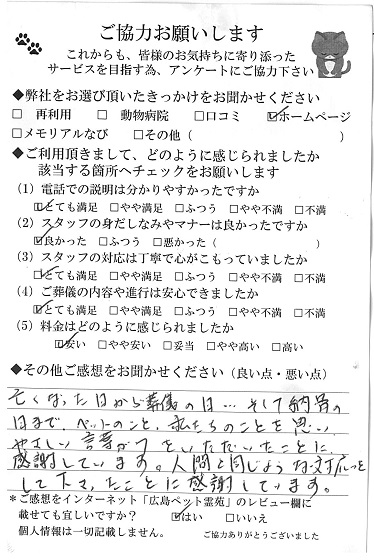 ご協力お願いします
これからも、皆様のお気持ちに寄り添った
サービスを目指す為、アンケートにご協力下さい
◆弊社をお選び頂いたきっかけをお聞かせください
□ 再利用 □ 動物病院 □口コミ ☑ホームページ
□メモリアルなび □その他（ ）
◆ご利用頂きまして、どのように感じられましたか
該当する箇所へチェックをお願いします
(1) 電話での説明は分かりやすかったですか
☑とても満足 □やや満足 □ふつう □やや不満 □不満
(2) スタッフの身だしなみやマナーは良かったですか
☑良かった □ふつう □悪かった（ ）
(3) スタッフの対応は丁寧で心がこもっていましたか
☑とても満足 □やや満足 □ふつう □やや不満 □不満
(4) ご葬儀の内容や進行は安心できましたか
☑とても満足 □やや満足 □ふつう □やや不満 □不満
(5) 料金はどのように感じられましたか
☑安い □やや安い □妥当 □やや高い □高い
◆その他ご感想をお聞かせください（良い点・悪い点）
亡くなった日から葬儀の日…そして納骨の
日まで、ペットのこと、私たちのことを思い
やさしい言葉がけをいただいたことに
感謝しています。人間と同じような対応を
して下さったことに感謝しています。
＊ご感想をインターネット「広島ペット霊苑」のレビュー欄に
載せても宜しいですか？ ☑はい □いいえ
個人情報は一切記載しません。 ご協力ありがとうございました